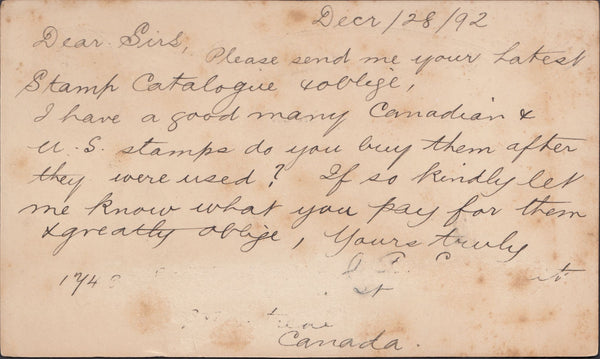 Decr/28/92
Dear Sirs,
Please send me your Latest
Stamp Catalogue & oblige,
I have a good many Canadian &
U.S. stamps do you buy them after
they were used? If so kindly let
me know what you pay for them
& greatly oblige, Yours truly
Canada.